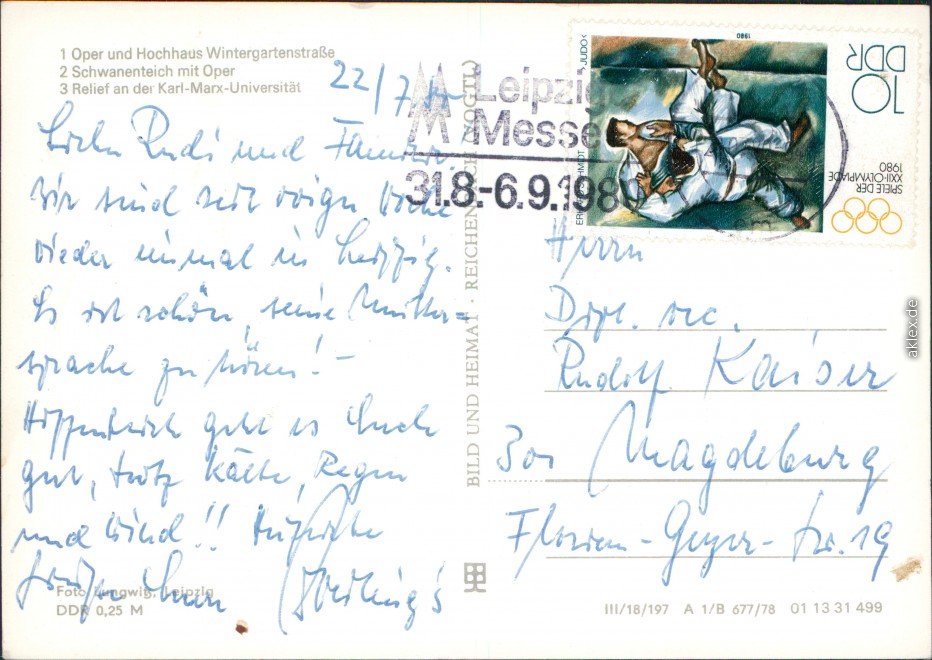 1 Oper und Hochhaus Wintergartenstraße
2 Schwanenteich mit Oper
3 Relief an der Karl-Marx-Universität
22/7
Liebe Rudi und Familie.
Wir sind seit voriger Woche
wieder einmal in Leipzig.
Es ist schön, seine Mutter=
sprache zu hören! –
Hoffentlich geht es Euch
gut, trotz Kälte, Regen
und Wind!! Herzliche
Grüße
Foto: Lungwig, Leipzig
DDR 0,25 M
BILD UND HEIMAT · REICHENBACH (VOGTL)
Leipziger
Messe
31.8.-6.9.198
DDR
10
›JUDO‹
1980
SPIELE DER
XXII. OLYMPIADE
1980
Herrn
Dipl. oec.
Rudolf Kaiser
301 Magdeburg
Florian-Geyer-Str. 19
III/18/197 A 1/B 677/78 01 13 31 499
aklex.de